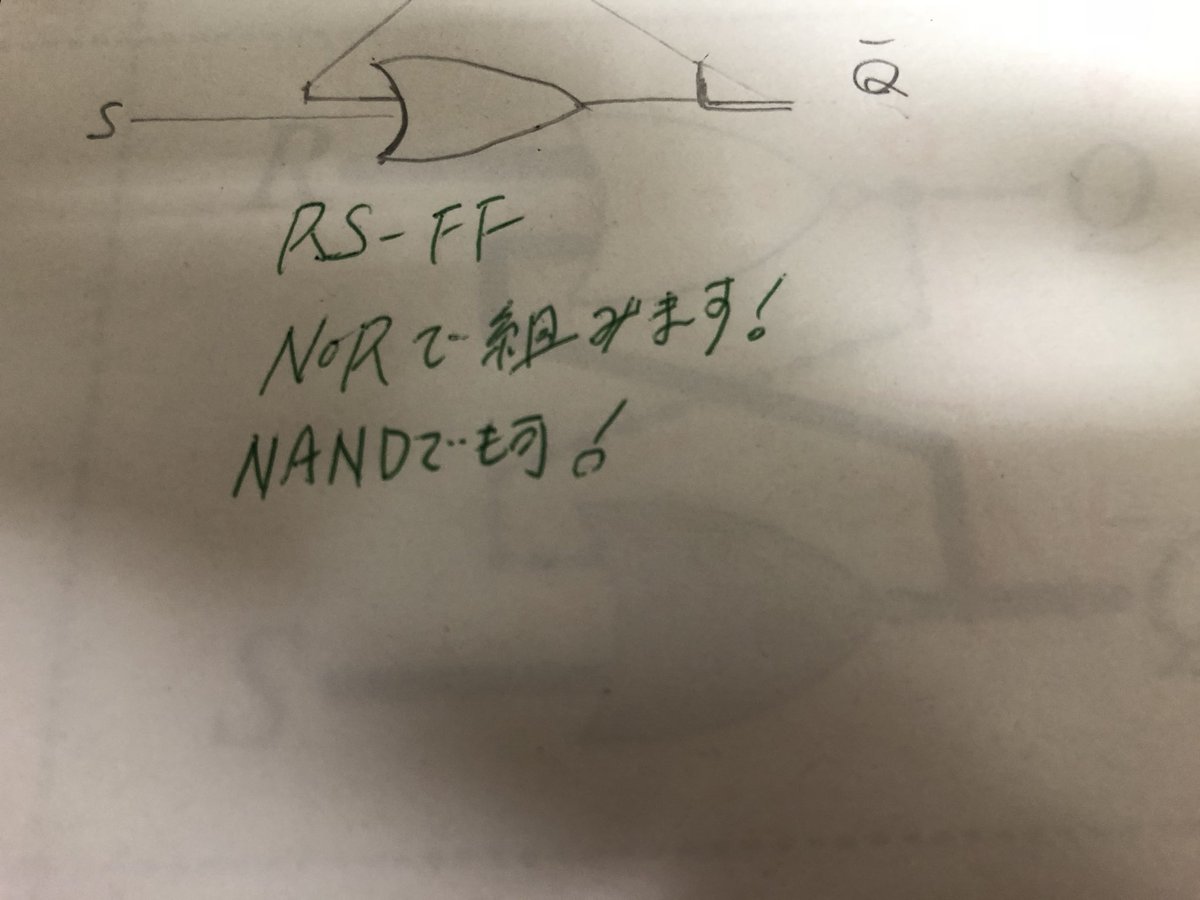 S Q̄
R Q
RS-FF
NORで組みます!
NANDでも可!
S